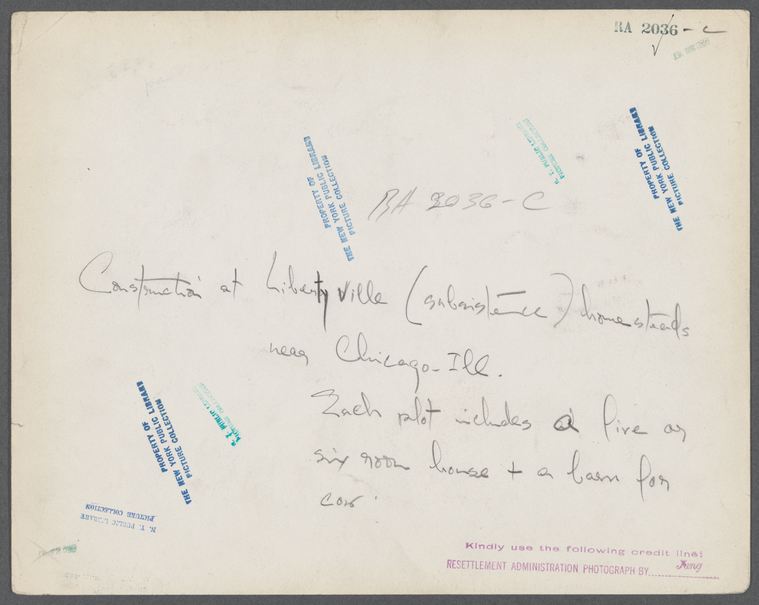 RA 2036-C
THE NEW YORK PUBLIC LIBRARY
PROPERTY OF
PICTURE COLLECTION
N. Y. PUBLIC LIBRARY
PICTURE COLLECTION
PROPERTY OF
THE NEW YORK PUBLIC LIBRARY
PICTURE COLLECTION
RA 2036-C
Construction at Libertyville (subsistence) homesteads
near Chicago-Ill.
Each plot includes a five or
six room house + a barn for
cow.
PROPERTY OF
THE NEW YORK PUBLIC LIBRARY
PICTURE COLLECTION
N. Y. PUBLIC LIBRARY
PICTURE COLLECTION
Kindly use the following credit line:
RESETTLEMENT ADMINISTRATION PHOTOGRAPH BY Jung